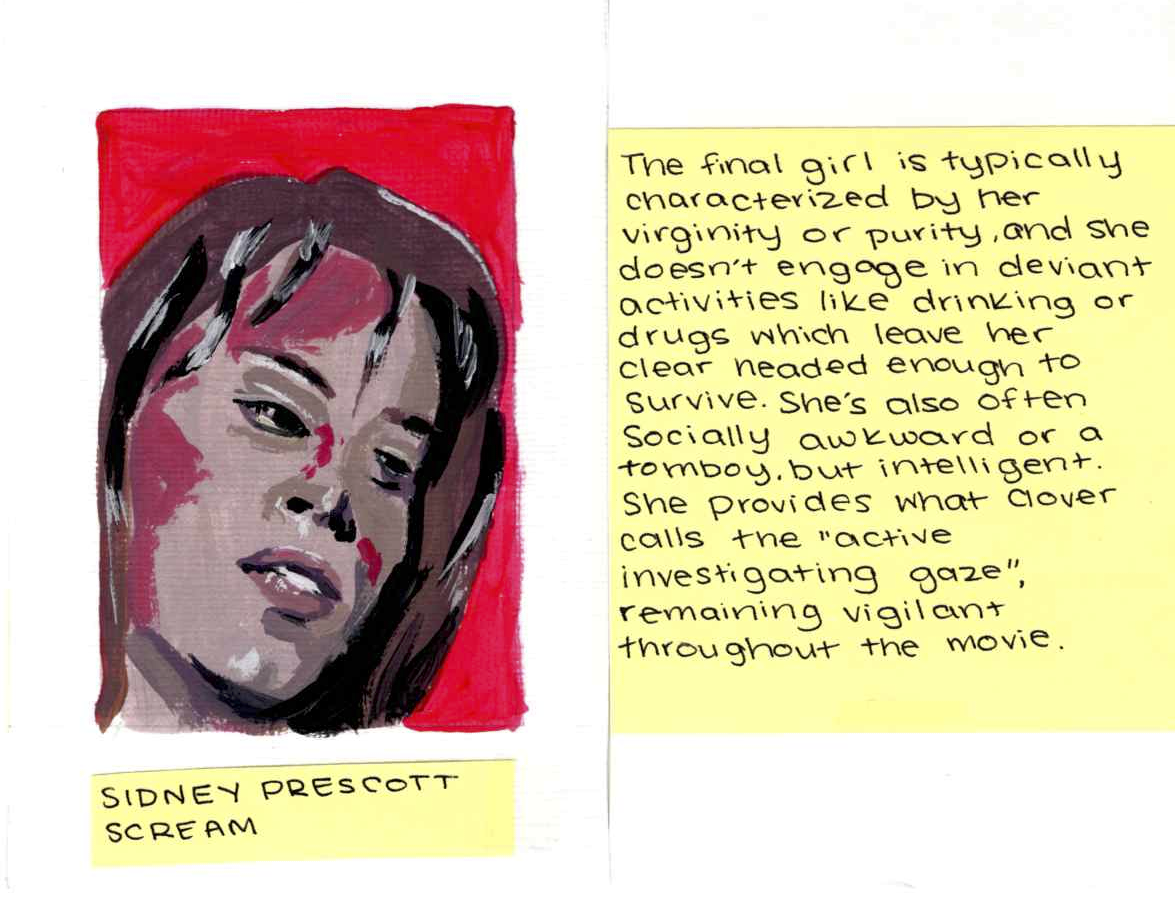 SIDNEY PRESCOTT
SCREAM
The final girl is typically
characterized by her
virginity or purity, and she
doesn't engage in deviant
activities like drinking or
drugs which leave her
clear headed enough to
survive. She's also often
Socially awkward or a
tomboy, but intelligent.
She provides what Clover
calls the "active
investigating gaze",
remaining vigilant
throughout the movie.